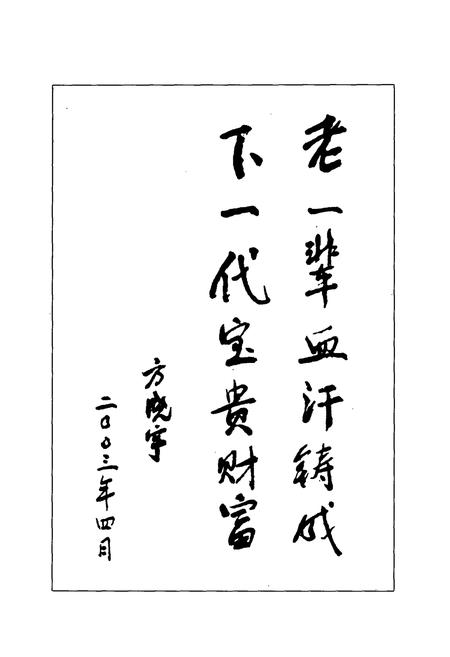 老一辈血汗铸成
下一代宝贵财富
方晓宇
二〇〇三年四月